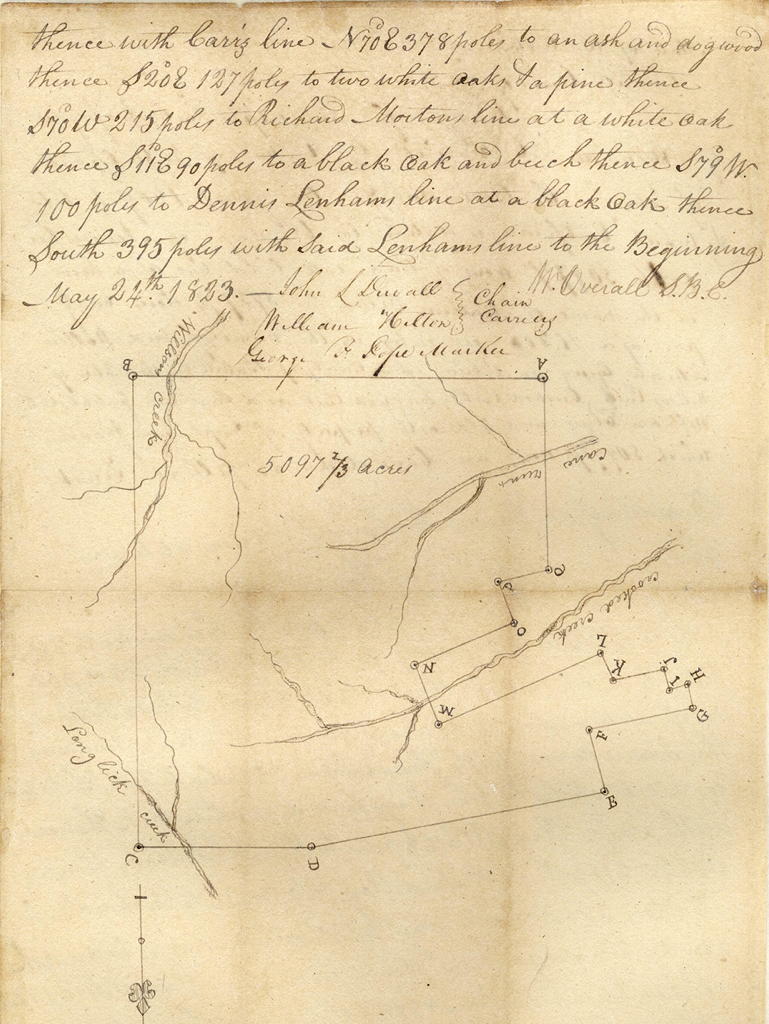 thence with Carrs line N70°E 378 poles to an ash and dogwood
thence S20°E 127 poles to two white oaks & a pine thence
S70°W 215 poles to Richard Mortons line at a white oak
thence S11°E 90 poles to a black Oak and beech thence S79°W.
100 poles to Dennis Lenhams line at a black Oak thence
South 395 poles with Said Lenhams line to the Beginning
May 24th. 1823. — John L Duvall } Chain W. Overall S.B.C.
William Hilton } Carriers
George F Pope Marker
B
A
Wilsons creek
5097 2/3 Acres
Cane runs
Q
P
O
crooked creek
N
L
K
J
I
H
G
M
F
E
Long lick creek
C
D